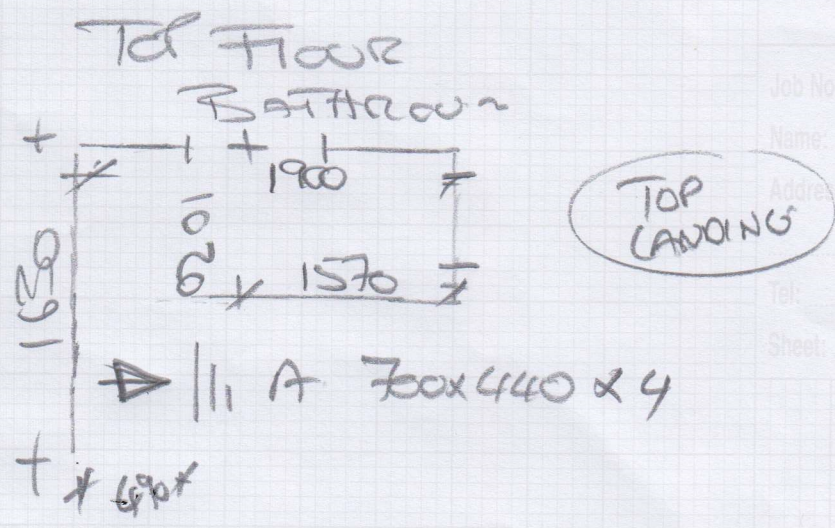 TOP FLOOR
BATHROOM
1900
TOP
LANDING
1570
1630
A 700x440 x 4
490
Job No
Name:
Addres
Tel:
Sheet: